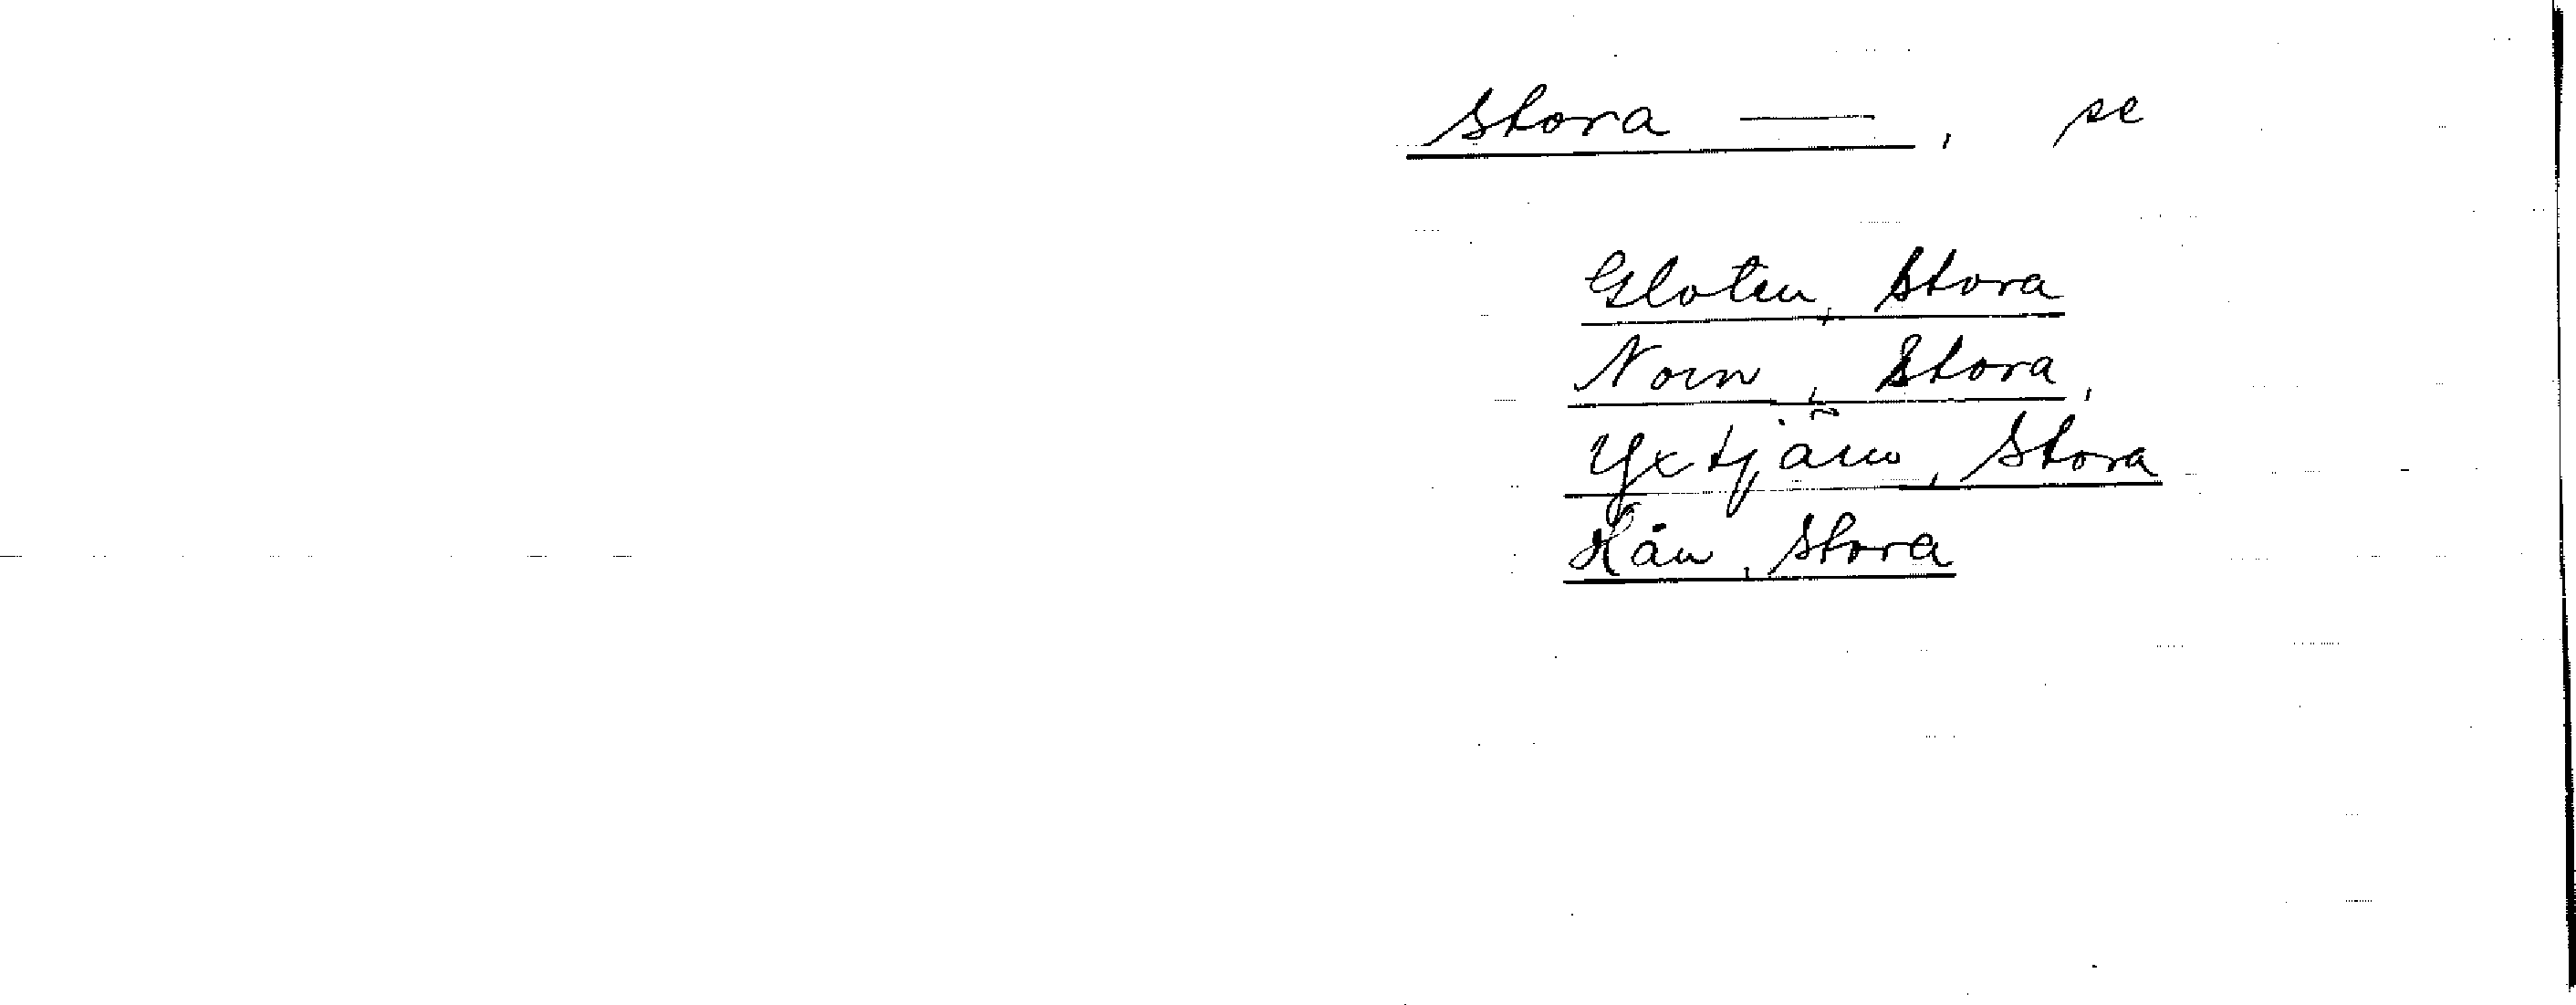 Stora —, se
Gloten, Stora
Norn, Stora,
Yxtjärn, Stora
Hån, Stora